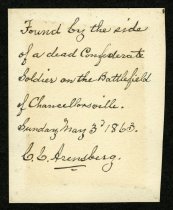 Found by the side
of a dead Confederate
Soldier on the Battlefield
of Chancellorsville.
Sunday May 3d 1863.
C. C. Arensberg.